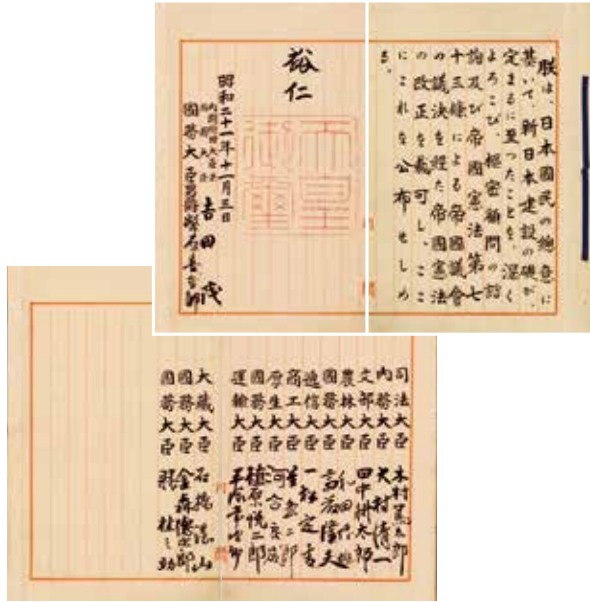 朕は、日本國民の總意に
基いて、新日本建設の礎が、
定まるに至つたことを、深く
よろこび、樞密顧問の諮
詢及び帝國憲法第七
十三條による帝國議會
の議決を經た帝國憲法
の改正を裁可し、ここ
にこれを公布せしめ
る。
裕仁
天皇御璽
昭和二十一年十一月三日
内閣總理大臣兼
外務大臣 吉田茂
國務大臣 男爵 幣原喜重郎
司法大臣 木村篤太郎
内務大臣 大村清一
文部大臣 田中耕太郎
農林大臣 和田博雄
國務大臣 斎藤隆夫
逓信大臣 一松定吉
商工大臣 星島二郎
厚生大臣 河合良成
國務大臣 植原悦二郎
運輸大臣 平塚常次郎
大藏大臣 石橋湛山
國務大臣 金森徳次郎
國務大臣 膳桂之助